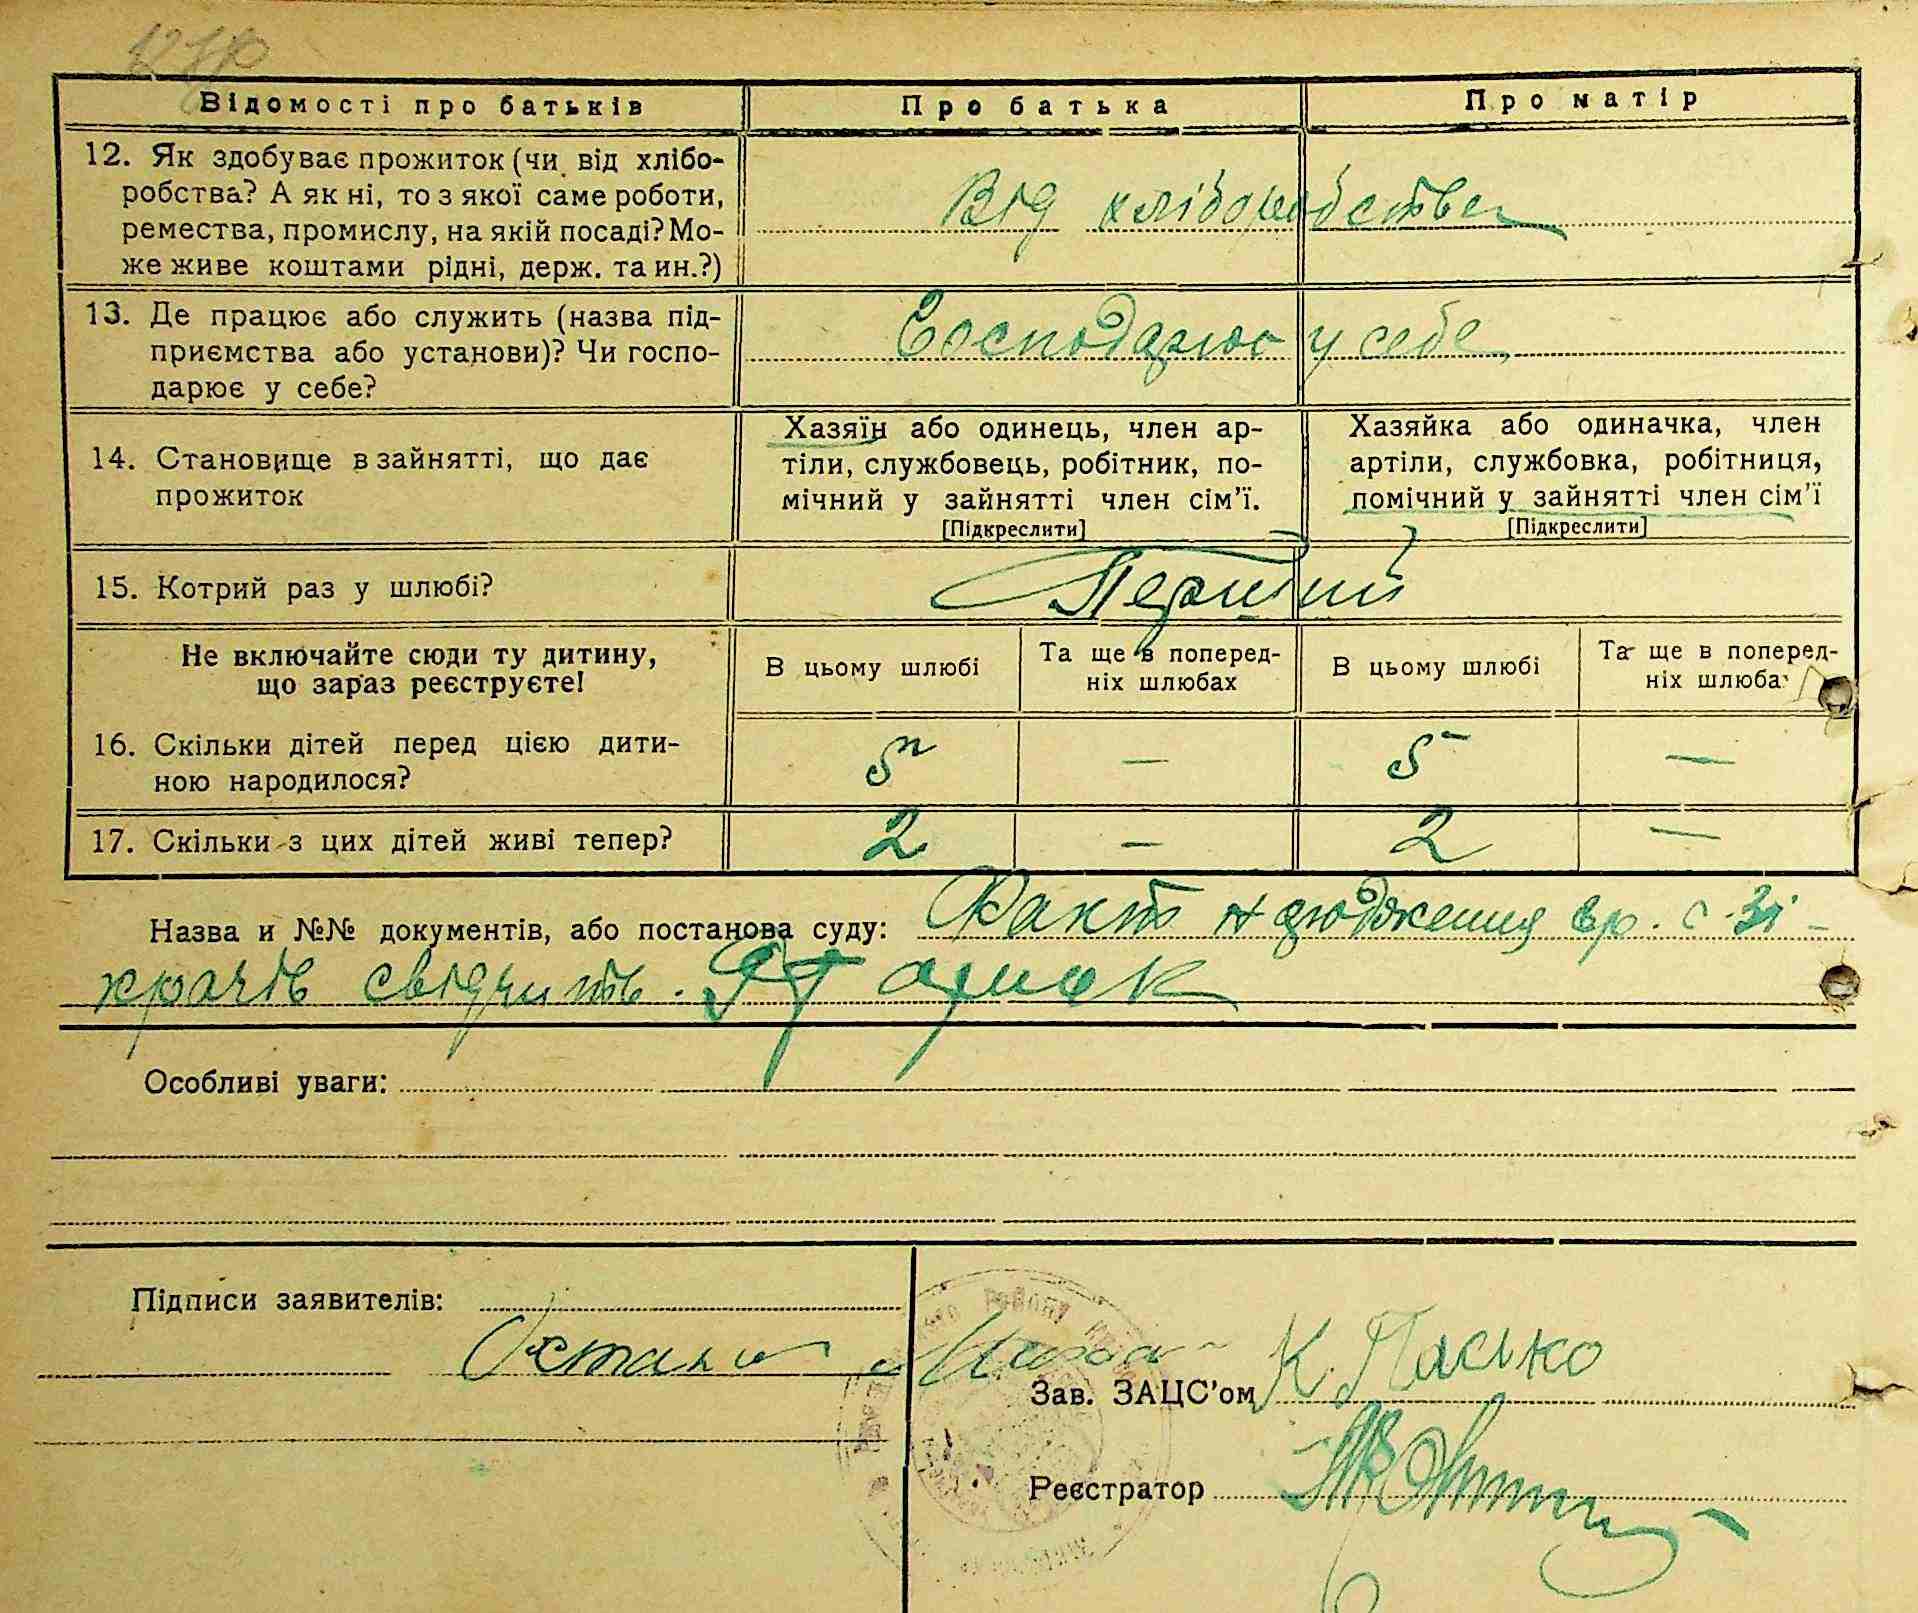 Відомості про батьків
Про батька
Про матір
12. Як здобуває прожиток (чи від хлібо-
робства? А як ні, то з якої саме роботи,
ремества, промислу, на якій посаді? Мо-
же живе коштами рідні, держ. та ин.?)
Від хліборобства
13. Де працює або служить (назва під-
приємства або установи)? Чи госпо-
дарює у себе?
Господарює у себе
14. Становище в зайнятті, що дає
прожиток
Хазяїн або одинець, член ар-
тіли, службовець, робітник, по-
мічний у зайнятті член сім'ї.
[Підкреслити]
Хазяйка або одиначка, член
артіли, службовка, робітниця,
помічний у зайнятті член сім'ї
[Підкреслити]
15. Котрий раз у шлюбі?
Перший
Не включайте сюди ту дитину,
що зараз реєструєте!
В цьому шлюбі
Та ще в поперед-
ніх шлюбах
В цьому шлюбі
Та ще в поперед-
ніх шлюба
16. Скільки дітей перед цією дити-
ною народилося?
5 — 5 —
17. Скільки з цих дітей живі тепер?
2 — 2 —
Назва и №№ документів, або постанова суду: Факт народження гр. с. Зі-
крачів свідчить.
Особливі уваги:
Підписи заявителів:
К. Пасько
Зав. ЗАЦС'ом
Реєстратор